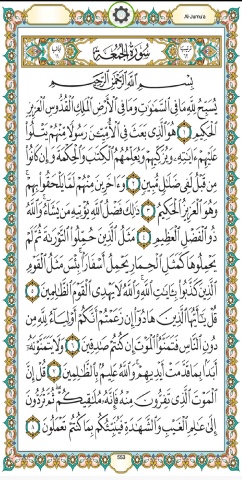 Al-Jumu'a
سُورَةُ الجُمُعَة
بِسْمِ اللَّهِ الرَّحْمَٰنِ الرَّحِيمِ
يُسَبِّحُ لِلَّهِ مَا فِي السَّمَٰوَٰتِ وَمَا فِي الْأَرْضِ الْمَلِكِ الْقُدُّوسِ الْعَزِيزِ
الْحَكِيمِ ١ هُوَ الَّذِي بَعَثَ فِي الْأُمِّيِّينَ رَسُولًا مِنْهُمْ يَتْلُوا
عَلَيْهِمْ ءَايَٰتِهِ وَيُزَكِّيهِمْ وَيُعَلِّمُهُمُ الْكِتَٰبَ وَالْحِكْمَةَ وَإِن كَانُوا
مِن قَبْلُ لَفِي ضَلَٰلٍ مُّبِينٍ ٢ وَءَاخَرِينَ مِنْهُمْ لَمَّا يَلْحَقُوا بِهِمْ
وَهُوَ الْعَزِيزُ الْحَكِيمُ ٣ ذَٰلِكَ فَضْلُ اللَّهِ يُؤْتِيهِ مَن يَشَاءُ وَاللَّهُ
ذُو الْفَضْلِ الْعَظِيمِ ٤ مَثَلُ الَّذِينَ حُمِّلُوا التَّوْرَىٰةَ ثُمَّ لَمْ
يَحْمِلُوهَا كَمَثَلِ الْحِمَارِ يَحْمِلُ أَسْفَارًا بِئْسَ مَثَلُ الْقَوْمِ
الَّذِينَ كَذَّبُوا بِـَٔايَٰتِ اللَّهِ وَاللَّهُ لَا يَهْدِي الْقَوْمَ الظَّٰلِمِينَ ٥
قُلْ يَٰأَيُّهَا الَّذِينَ هَادُوا إِن زَعَمْتُمْ أَنَّكُمْ أَوْلِيَاءُ لِلَّهِ مِن
دُونِ النَّاسِ فَتَمَنَّوُا الْمَوْتَ إِن كُنتُمْ صَٰدِقِينَ ٦ وَلَا يَتَمَنَّوْنَهُ
أَبَدًا بِمَا قَدَّمَتْ أَيْدِيهِمْ وَاللَّهُ عَلِيمٌ بِالظَّٰلِمِينَ ٧ قُلْ إِنَّ
الْمَوْتَ الَّذِي تَفِرُّونَ مِنْهُ فَإِنَّهُ مُلَٰقِيكُمْ ثُمَّ تُرَدُّونَ
إِلَىٰ عَٰلِمِ الْغَيْبِ وَالشَّهَٰدَةِ فَيُنَبِّئُكُم بِمَا كُنتُمْ تَعْمَلُونَ ٨
553